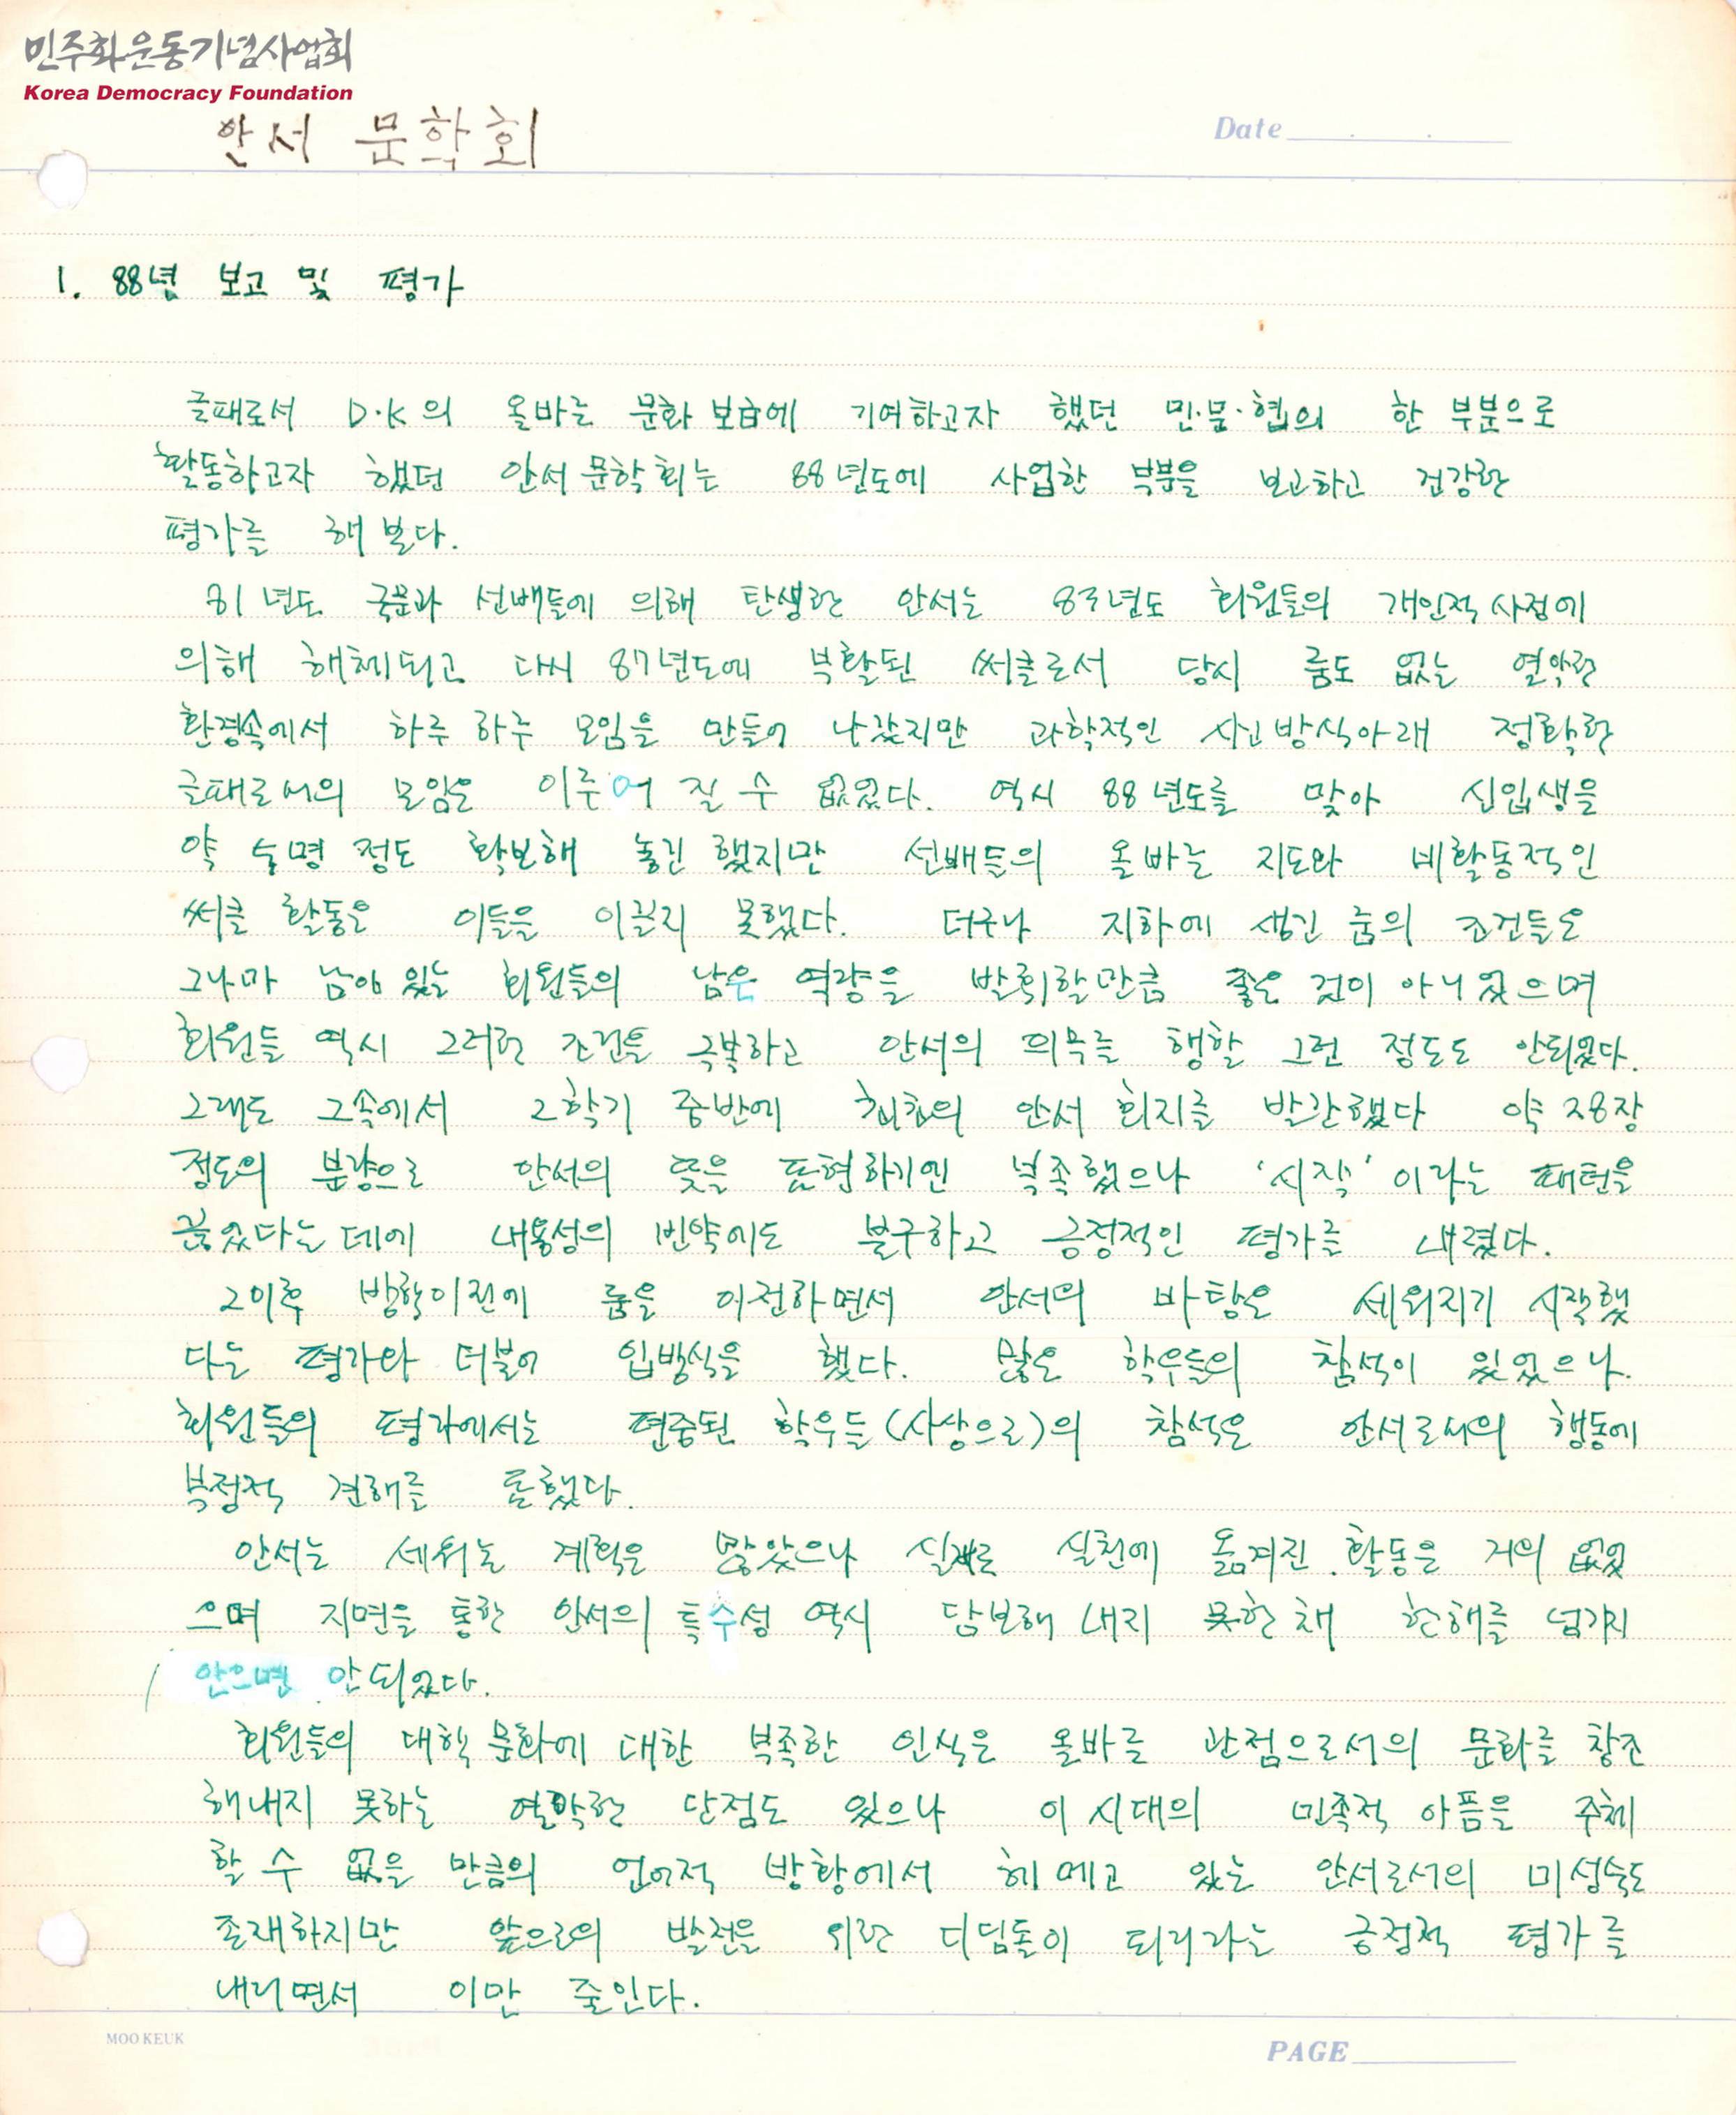 민주화운동기념사업회
Korea Democracy Foundation
안서 문학회
Date
1. 88년 보고 및 평가
글패로서 D·K의 올바른 문화 보급에 기여하고자 했던 민·문·협의 한 부분으로
활동하고자 했던 안서문학회는 88년도에 사업한 부분을 보고하고 건강한
평가를 해 본다.
81년도 국문과 선배들에 의해 탄생한 안서는 83년도 회원들의 개인적 사정에
의해 해체되고 다시 87년도에 부활된 써클로서 당시 룸도 없는 열악한
환경속에서 하루 하루 모임을 만들어 나갔지만 과학적인 사고방식아래 정확한
글패로서의 모임은 이루어 질 수 없었다. 역시 88년도를 맞아 신입생을
약 명 정도 확보해 놓긴 했지만 선배들의 올바른 지도와 비활동적인
써클 활동은 이들을 이끌지 못했다. 더구나 지하에 생긴 룸의 조건들은
그나마 남아 있는 회원들의 남은 역량을 발휘할만큼 좋은 것이 아니었으며
회원들 역시 그러한 조건을 극복하고 안서의 의무를 행할 그런 정도도 안되었다.
그래도 그속에서 2학기 중반에 최초의 안서 회지를 발간했다 약 28장
정도의 분량으로 안서의 뜻을 표현하기엔 부족했으나 '시작'이라는 패턴을
끊었다는데에 내용성의 빈약에도 불구하고 긍정적인 평가를 내렸다.
그이후 방학이전에 룸을 이전하면서 안서의 바탕은 세워지기 시작했
다는 평가와 더불어 입방식을 했다. 많은 학우들의 참석이 있었으나.
회원들의 평가에서는 편중된 학우들(사상으로)의 참석은 안서로서의 행동에
부정적 견해를 토했다.
안서는 세워논 계획은 많았으나 실제로 실천에 옮겨진 활동은 거의 없었
으며 지면을 통한 안서의 특수성 역시 담보해 내지 못한채 한해를 넘기지
안으면 안되었다.
회원들의 대학 문화에 대한 부족한 인식은 올바를 관점으로서의 문화를 창조
해내지 못하는 열악한 단점도 있으나 이 시대의 민족적 아픔을 주체
할 수 없을 만큼의 언어적 방황에서 헤메고 있는 안서로서의 미성숙도
존재하지만 앞으로의 발전을 위한 디딤돌이 되리라는 긍정적 평가를
내리면서 이만 줄인다.
MOO KEUK
PAGE